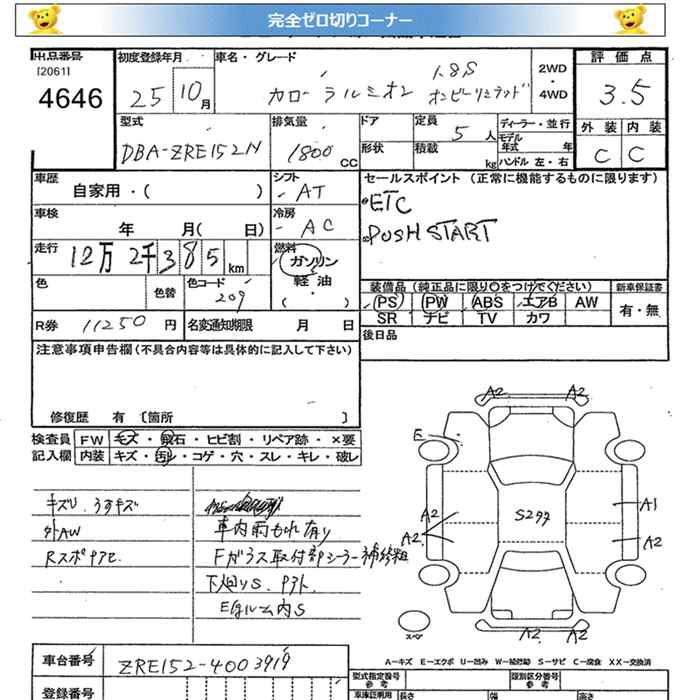 完全ゼロ切りコーナー
出品番号
[2061]
4646
初度登録年月
25 10月
車名・グレード
カローラルミオン
1.8S
オンビーリミテッド
2WD
・
4WD
評価点
3.5
外装 内装
C C
型式
DBA-ZRE152N
排気量
1800 CC
ドア
形状
定員
5人
積載
kg
ディーラー・並行
モデル年式 年
ハンドル 左・右
車歴
自家用・( )
シフト
AT
車検
年 月( 日)
冷房
AC
走行
12万2千385km
燃料
ガソリン
軽油
( ・ )
色
色替
色コード
209
R券 11250円
名変通知期限 月 日
セールスポイント (正常に機能するものに限ります)
ETC
PUSH START
装備品(純正品に限り○をつけてください)
PS PW ABS エアB AW
SR ナビ TV カワ
新車保証書
有・無
後日品
注意事項申告欄(不具合内容等は具体的に記入して下さい)
修復歴 有 〔箇所 〕
検査員記入欄
FW キズ・飛石・ヒビ割・リペア跡・×要
内装 キズ・汚レ・コゲ・穴・スレ・キレ・破レ
キズU うすキズ
外AW
車内雨もれ有り
Fガラス取付部シーラー補修粗
下廻りS
Eルーム内S
A2 A2
E
A2
A2
A1
A2
A2 A2
スペア
A-キズ E-エクボ U-凹み W-補修跡 S-サビ C-腐食 XX-交換済
車台番号
ZRE152-4003919
登録番号
型式指定番号
参考
類別区分番号
参考
車庫証明用
長さ
幅
高さ